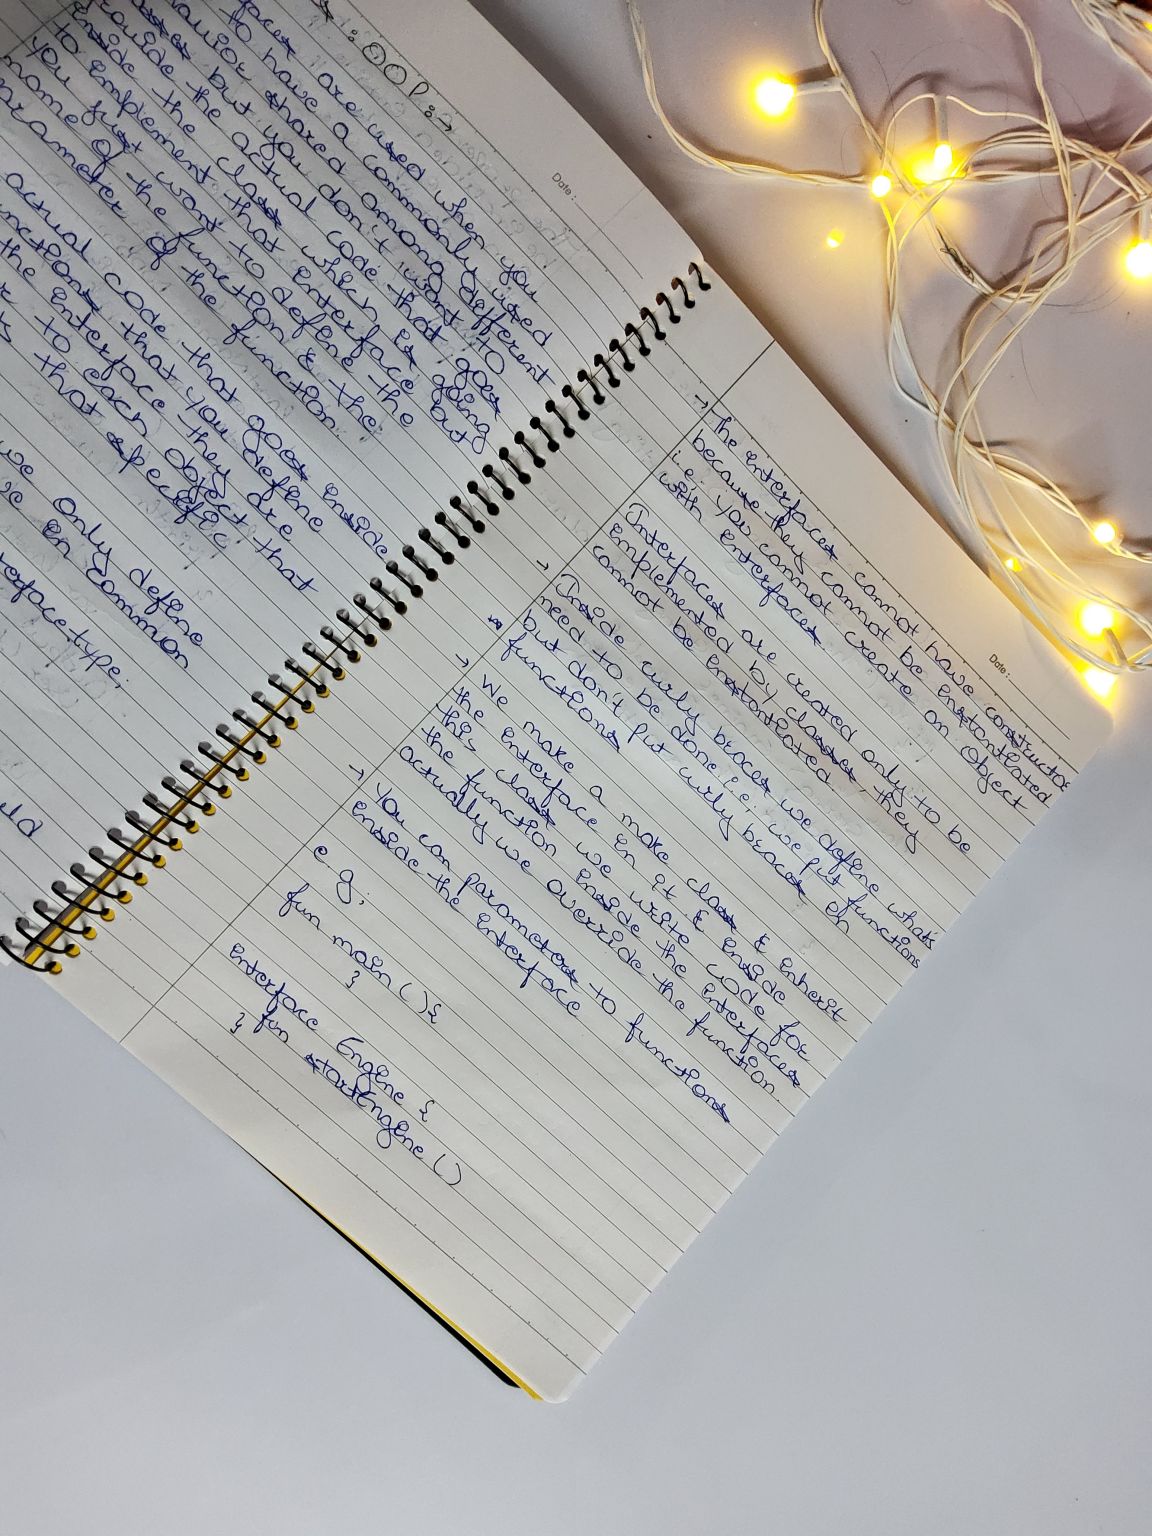 : OOP :→
faces are used when you
to have a commonly used
haviour shared among different
but you don't want to
provide the actual code that goes
inside the class which is going
to implement that interface but
you just want to define the
name of the function & the
parameter of the function.
actual code that goes inside
functions that you define
the interface they are
to each object that
that specific
we only define
in common
interface type;
Date:
Date:
→ The interfaces cannot have constructor
because they cannot be instantiated
i.e; you cannot create an object
with interfaces
→ Interfaces are created only to be
implemented by classes, they
cannot be instantiated.
* Inside curly braces we define what's
need to be done i.e; we put functions
but don't put curly braces in
functions
→ We make a make class & inherit
the interface in it & inside
this class we write code for
the function inside the interfaces
actually we override the function
→ You can parameters to functions
inside the interface
e.g;
fun main () {
}
interface Engine {
fun startEngine ()
}